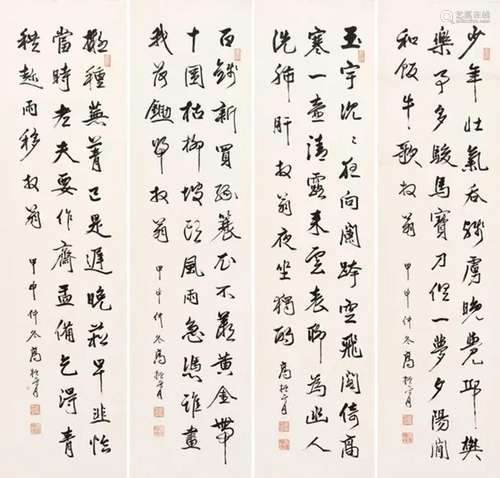 少年壮氣吞殘虜晚覺邱樊
樂事多駿馬寶刀俱一夢夕陽閒
和飯牛歌 放翁 甲申仲冬
玉宇沉々夜向闌跨空飛閣倚高
寒一壺清露来雲表聊為幽人
洗肺肝 放翁夜坐獨酌
百錢新買綠蓑衣不羨黃金帶
十圍枯柳坡頭風雨急憑誰畫
我荷鋤歸 放翁 甲申仲冬
擬種蕪菁已是遲晚菘早韭恰
當時老夫要作齋盂備乞得青
秧趁雨移 放翁 甲申仲冬